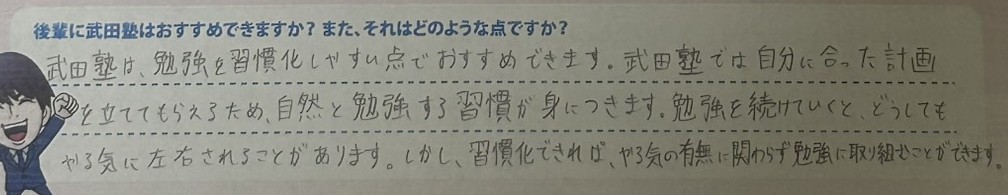 後輩に武田塾はおすすめできますか？また、それはどのような点ですか？
武田塾は、勉強を習慣化しやすい点でおすすめできます。武田塾では自分に合った計画
を立ててもらえるため、自然と勉強する習慣が身につきます。勉強を続けていくと、どうしても
やる気に左右されることがあります。しかし、習慣化できれば、やる気の有無に関わらず勉強に取り組むことができます。